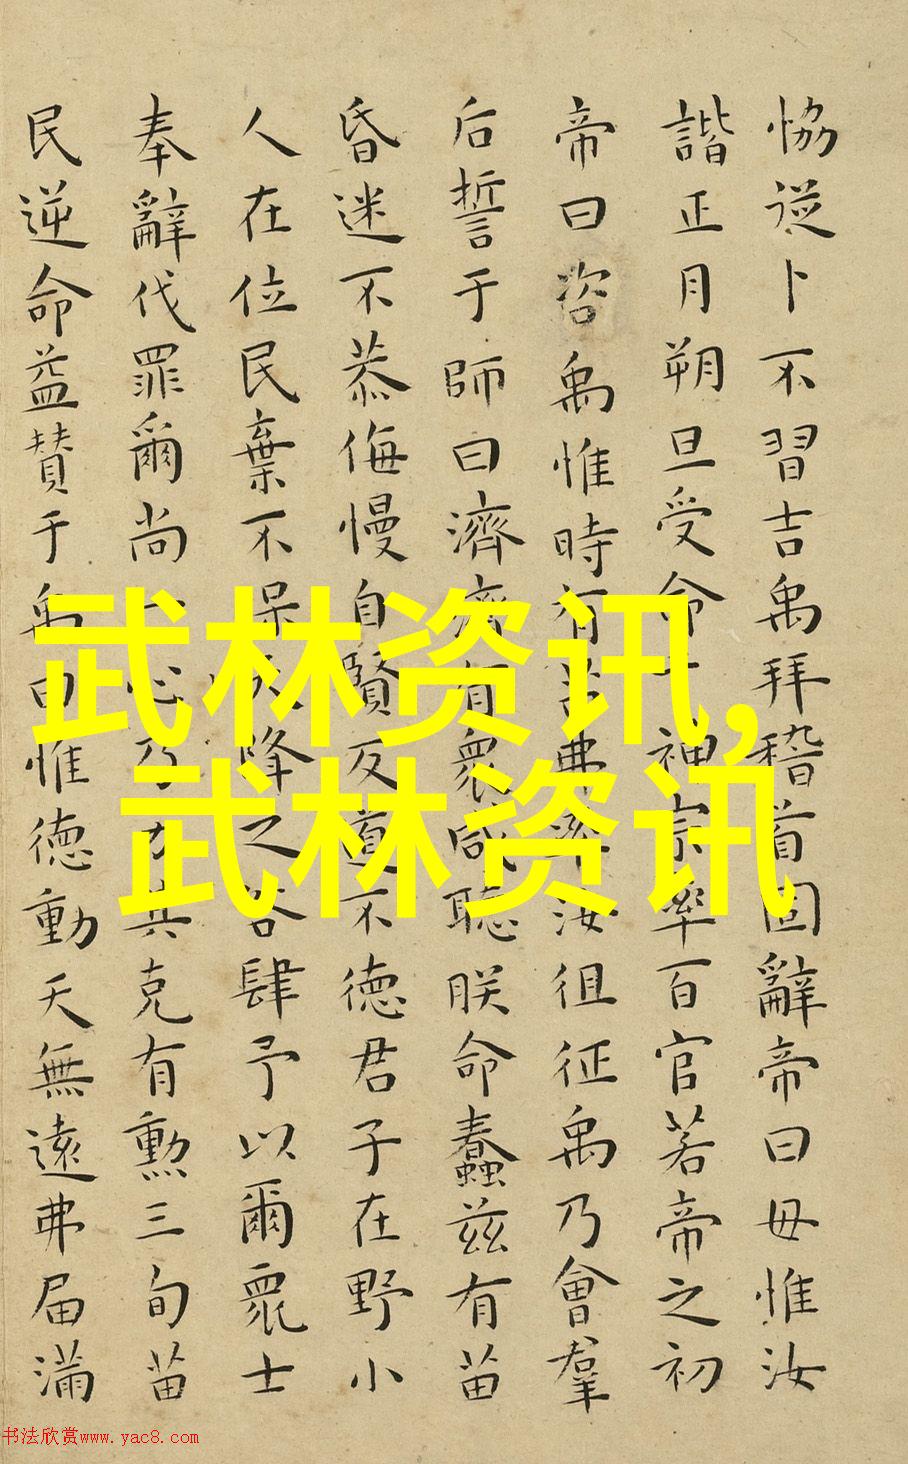 恊從卜不習吉禹拜稽首固辭帝曰毋惟汝
諧正月朔旦受命于神宗率百官若帝之初
帝曰咨禹惟時有苗弗率汝徂征禹乃會羣
后誓于師曰濟濟有衆咸聽朕命蠢茲有苗
昏迷不恭侮慢自賢反道不德君子在野小
人在位民棄不保天降之咎肆予以爾衆士
奉辭伐罪爾尚一心乃力其克有勳三旬苗
民逆命益贊于禹曰惟德動天無遠弗届滿
武林资讯,
武林资讯
书法欣赏www.yac8.com